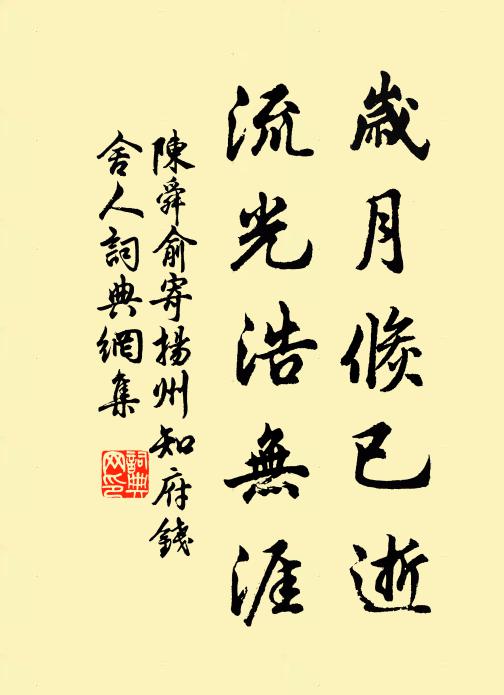 歲月倏已逝
流光浩無涯
陳舜俞寄揚州知府錢
舍人詞典網集
詞典
网印